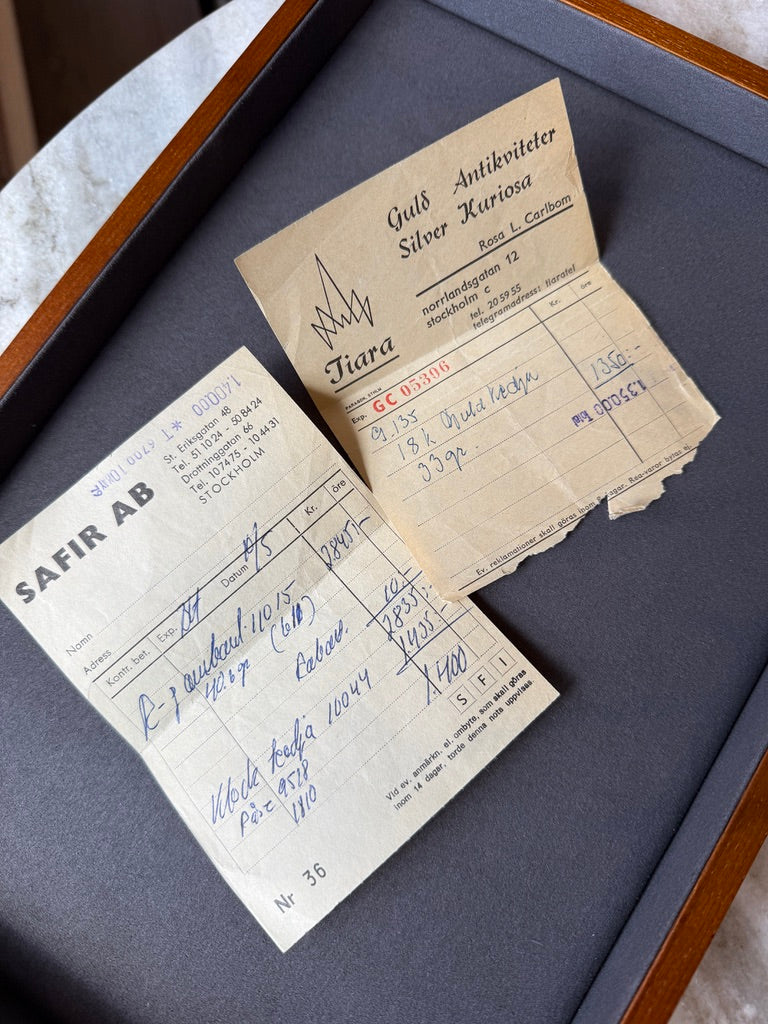 Guld Antikviteter
Silver Kuriosa
Rosa L. Carlbom
Tiara
norrlandsgatan 12
stockholm c
tel. 20 59 55
telegramadress: tiaratel
PARAGON, STHLM
Exp. GC 05306
Kr. öre
g. 135
18k Guld kedja 1350:-
33 gr
1.350.00
Ev. reklamationer skall göras inom 8 dagar. Rea-varor bytas ej.
140000 * T
SAFIR AB
St. Eriksgatan 48
Tel. 51 10 24 - 50 84 24
Drottninggatan 66
Tel. 10 74 75 - 10 44 31
STOCKHOLM
Namn
Adress Datum
Kontr. bet. Exp. Kr. öre
11015 2845:-
40.6 gr 10.-
2835:-
1435:-
Klock kedja 10044 1.400
9518
1810
S F I
Vid ev. anmärkn. el. ombyte, som skall göras
inom 14 dagar, torde denna nota uppvisas.
Nr 36